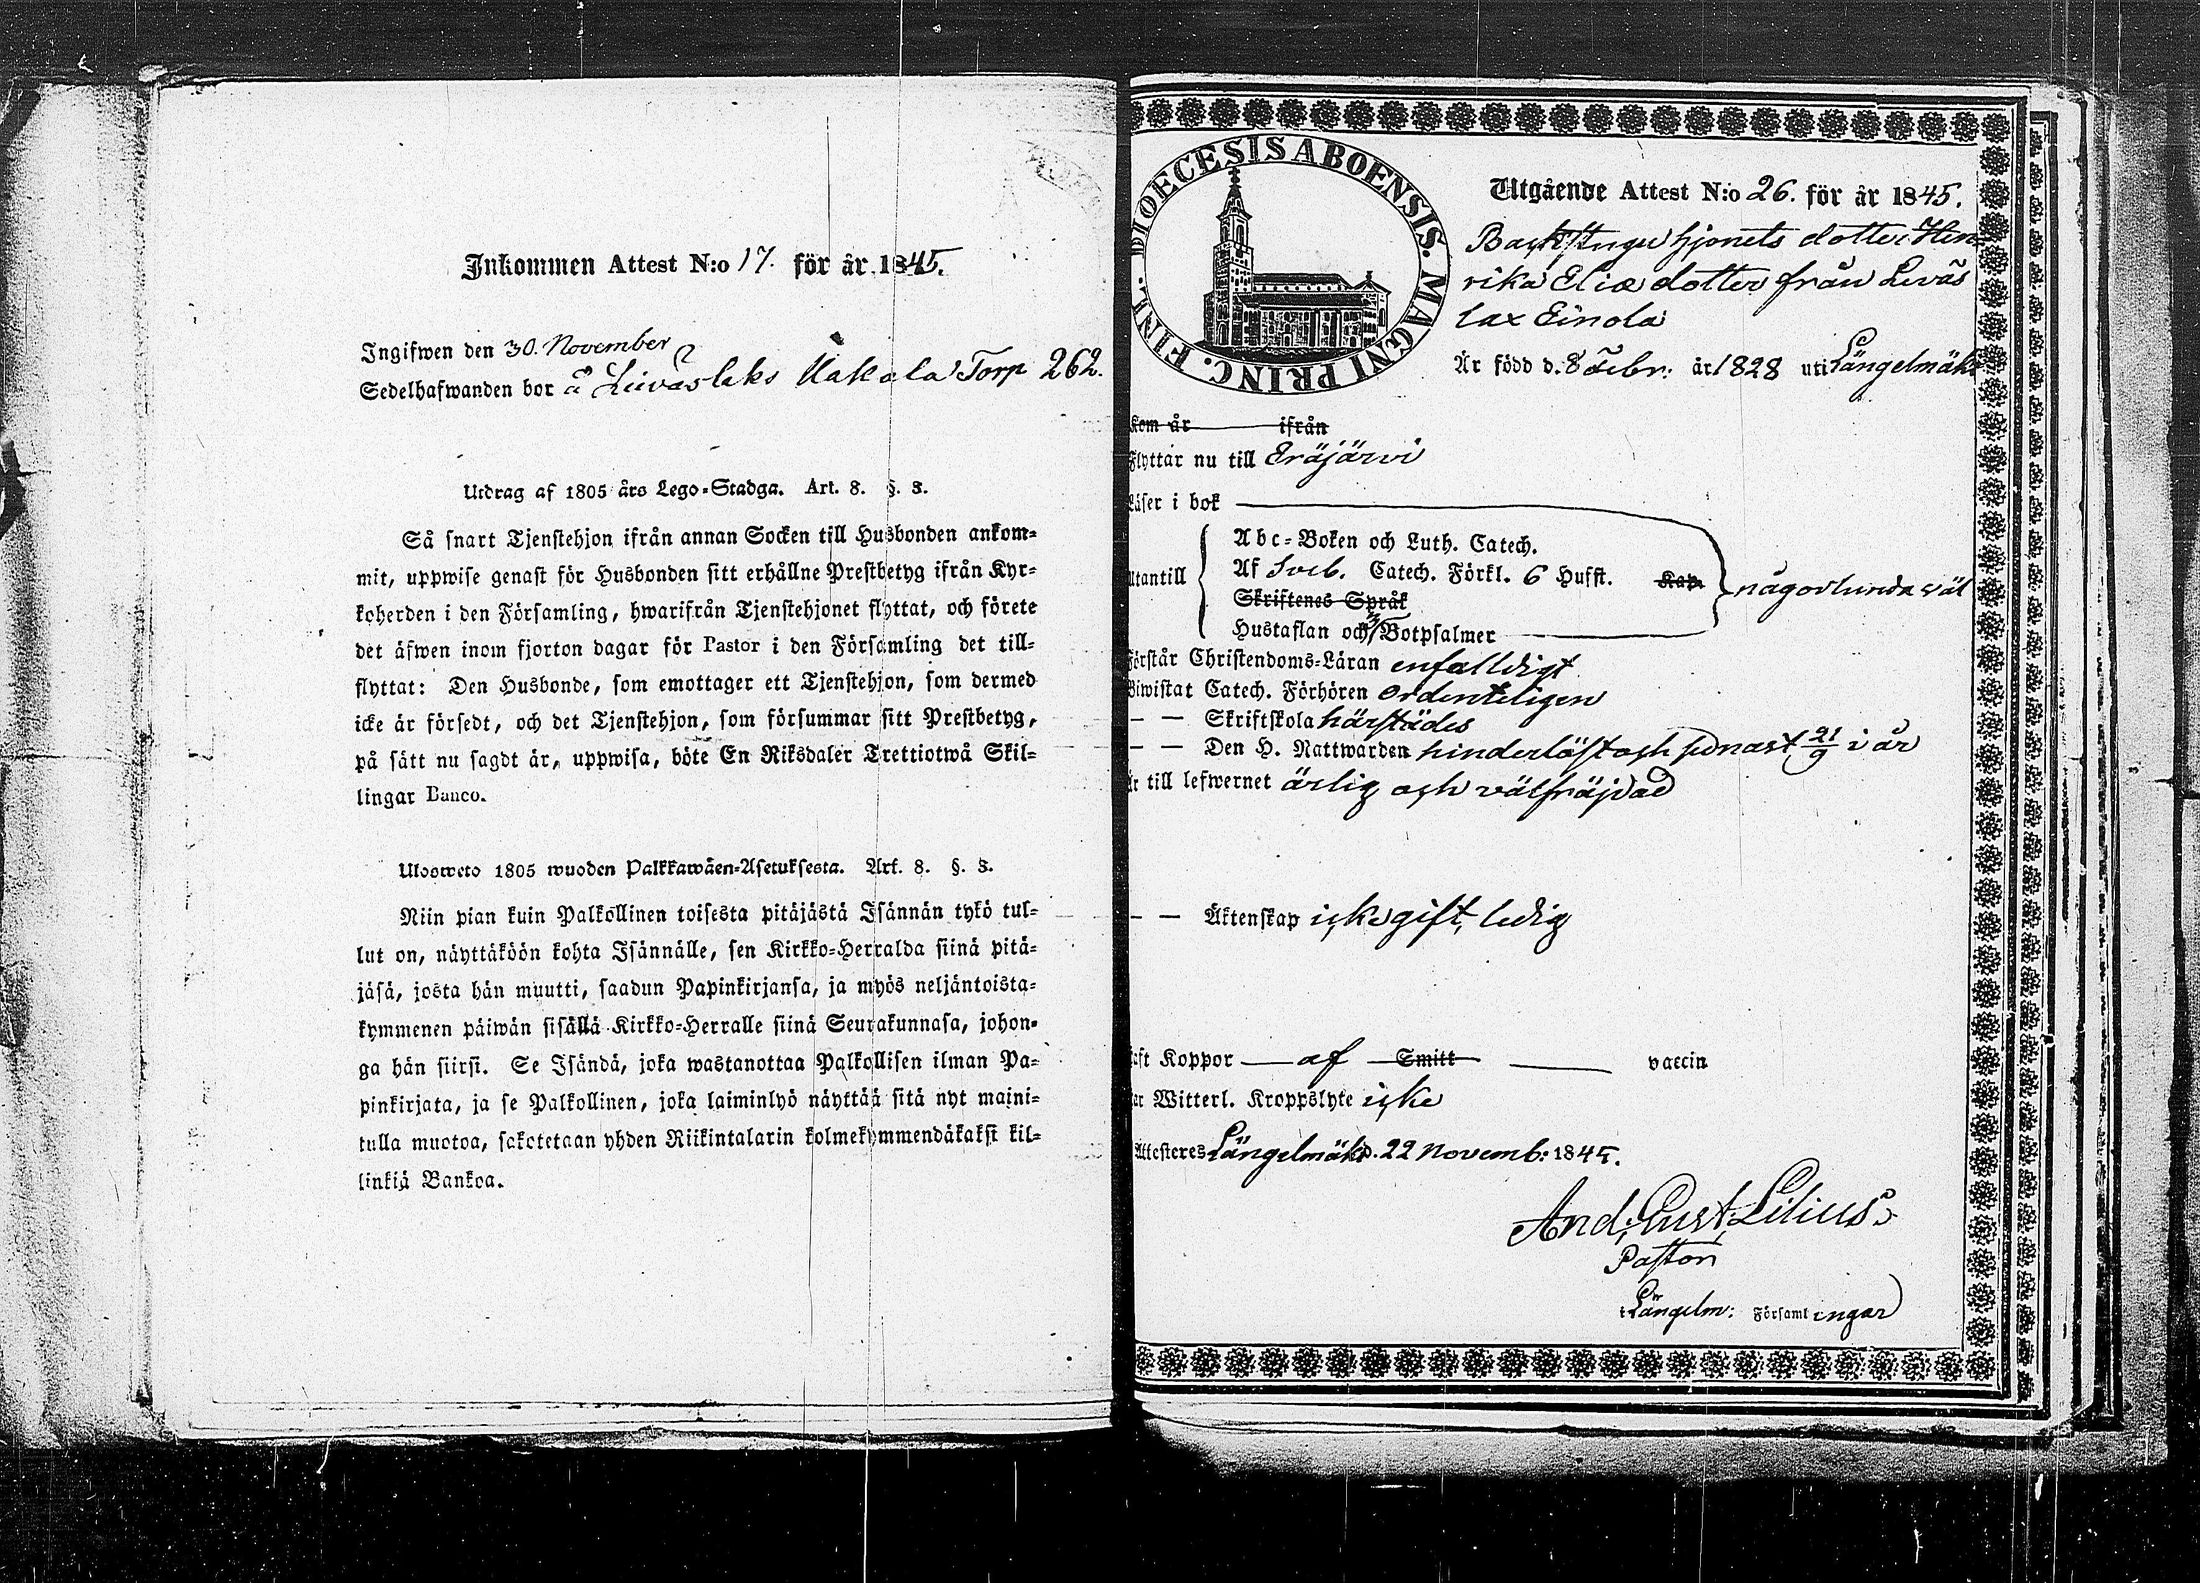 Inkommen Attest N:o 17. för år 1845.
Ingifwen den 30. November
Sedelhafwanden bor å Liuvaslaks Kakola Torp 262.
Utdrag af 1805 års Lego-Stadga. Art. 8. §. 3.
Så snart Tjenstehjon ifrån annan Socken till Husbonden ankom-
mit, uppwise genast för Husbonden sitt erhållne Prestbetyg ifrån Kyr-
koherden i den Församling, hwarifrån Tjenstehjonet flyttat, och förete
det äfwen inom fjorton dagar för Pastor i den Församling det till-
flyttat: Den Husbonde, som emottager ett Tjenstehjon, som dermed
icke är försedt, och det Tjenstehjon, som försummar sitt Prestbetyg,
på sätt nu sagdt är, uppwisa, böte En Riksdaler Trettiotwå Skil-
lingar Banco.
Ulosweto 1805 wuoden Palkkawäen-Asetuksesta. Art. 8. §. 3.
Niin pian kuin Palkollinen toisesta pitäjästä Isännän tykö tul-
lut on, näyttäköön kohta Isännälle, sen Kirkko-Herralda siinä pitä-
jäsä, josta hän muutti, saadun Papinkirjansa, ja myös neljäntoista-
kymmenen päiwän sisällä Kirkko-Herralle siinä Seurakunnasa, johon-
ga hän siirsi. Se Isändä, joka wastanottaa Palkollisen ilman Pa-
pinkirjata, ja se Palkollinen, joka laiminlyö näyttää sitä nyt maini-
tulla muotoa, sakotetaan yhden Riikintalarin kolmekymmendäkaksi kil-
linkiä Bankoa.
DIOECESIS ABOENSIS. MAGNI PRINC. FINL.
Utgående Attest N:o 26. för år 1845.
Backstugu hjonets dotter Hen
rika Eliæ dotter från Lewäs
lax Einola
Är född d. 8 Febr: år 1828 uti Längelmäki
Kom år ifrån
Flyttar nu till Eräjärwi
Läser i bok
Abc-Boken och Luth. Catech.
Utantill Af Sveb. Catech. Förkl. 6 Hufst. Kap. någorlunda väl
Skriftenes Språk
Hustaflan och 3/ Botpsalmer
Förstår Christendoms-Läran enfalldigt
Biwistat Catech. Förhören ordenteligen
— — Skriftskola härstädes
— — Den H. Nattwarden hinderlöst och senast 21/9 i år
Är till lefwernet ärlig och välfräjdad
— — Äktenskap icke gift, ledig
Haft Koppor af Smitt vaccin
Har Witterl. Kroppslyte icke
Attesteres Längelmäki d. 22 Novemb: 1845.
And. Gust. Lilius.
Pastor
i Längelm: Församlingar